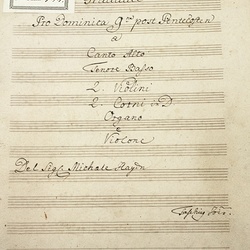 Graduale
Pro Dominica 9na post Pentecosten
a
Canto Alto
Tenore Basso
2. Violini
2. Corni in D
Organo
e
Violone
Del Sigl: Michale Haydn